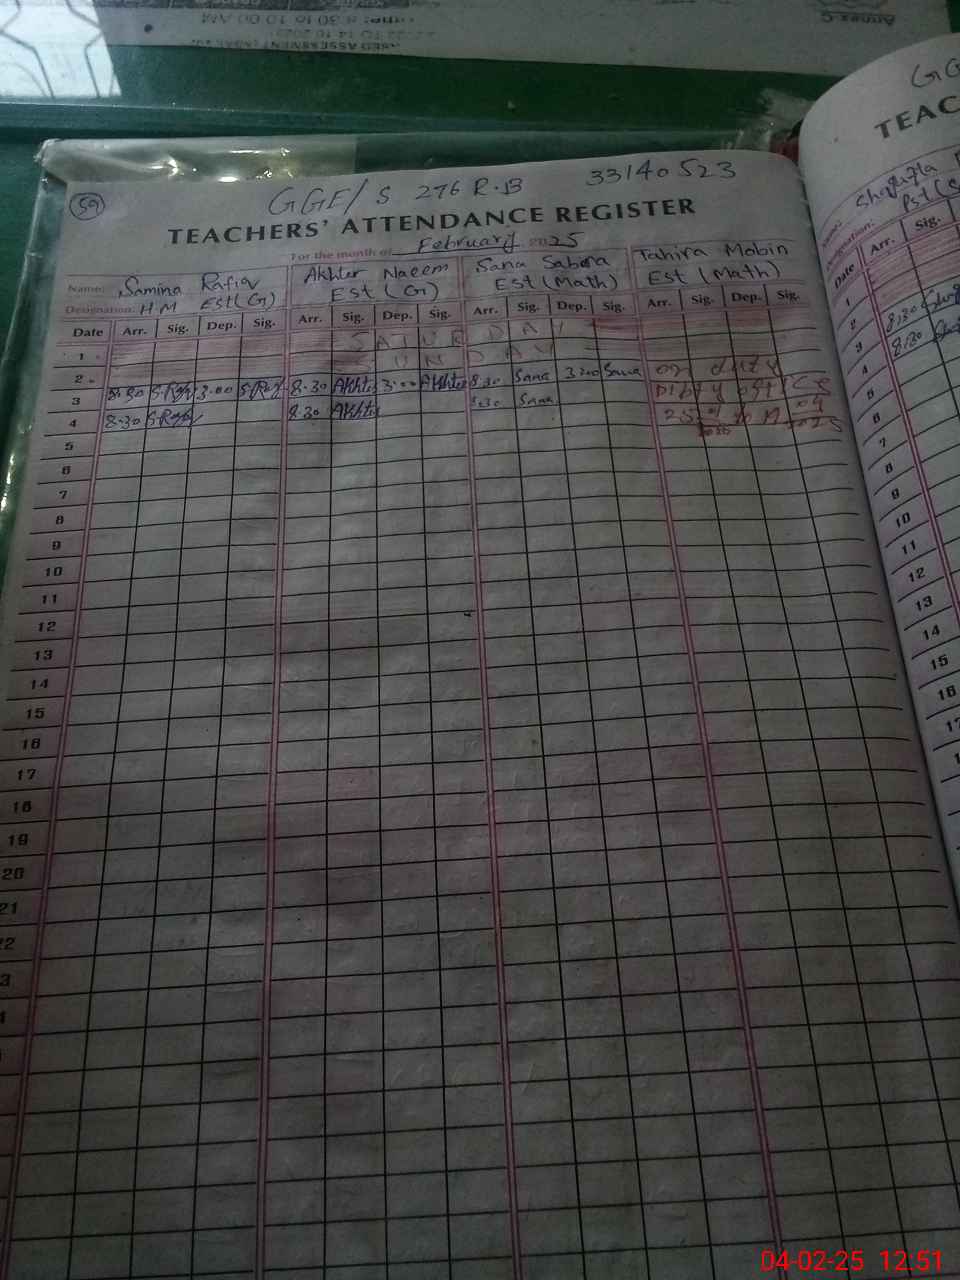 Annex C
Time: 8:30 to 10:00 AM
TO 14 10 202
ASED ASSESSMENT
59
GGE/S 276 R.B 33140523
TEACHERS' ATTENDANCE REGISTER
For the month of February 2025
Name: Samina Rafiq Akhter Naeem Sana Sabera Tahira Mobin
Designation: H.M Est(G) Est (G) Est (Math) Est (Math)
Date Arr. Sig. Dep. Sig. Arr. Sig. Dep. Sig. Arr. Sig. Dep. Sig. Arr. Sig. Dep. Sig.
1 SATURDAY
2 SUNDAY
3 8:30 3:00 8:30 Akhter 3:00 Akhter 8:30 Sana 3:00 Sana on duty
4 8:30 8:30 Akhter 8:30 Sana
5
6
7
8
9
10
11
12
13
14
15
16
17
18
19
20
21
22
3
GG
TEAC
Name: Shagufta
Designation: Pst
Date Arr. Sig.
1
2
3 8:30
4 8:30
5
6
7
8
9
10
11
12
13
14
15
16
04-02-25 12:51